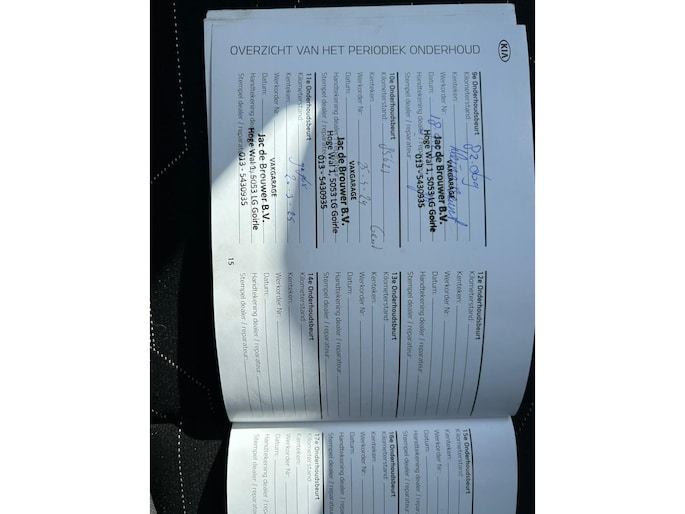 OVERZICHT VAN HET PERIODIEK ONDERHOUD
KIA
9e Onderhoudsbeurt
Kilometerstand:
Kenteken:
Werkorder Nr:
Datum: 18
Handtekening dealer / reparateur
Stempel dealer / reparateur
VAKGARAGE
Jac de Brouwer B.V.
Hoge Wal 1, 5053 LG Goirle
013 - 5430935
10e Onderhoudsbeurt
Kilometerstand:
Kenteken:
Werkorder Nr:
Datum:
Handtekening dealer / reparateur
Stempel dealer / reparateur
VAKGARAGE
Jac de Brouwer B.V.
Hoge Wal 1, 5053 LG Goirle
013 - 5430935
11e Onderhoudsbeurt
Kilometerstand:
Kenteken:
Werkorder Nr:
Datum:
Handtekening dealer / reparateur
Stempel dealer / reparateur
VAKGARAGE
Jac de Brouwer B.V.
Hoge Wal 1, 5053 LG Goirle
013 - 5430935
12e Onderhoudsbeurt
Kilometerstand:
Kenteken:
Werkorder Nr:
Datum:
Handtekening dealer / reparateur
Stempel dealer / reparateur
13e Onderhoudsbeurt
Kilometerstand:
Kenteken:
Werkorder Nr:
Datum:
Handtekening dealer / reparateur
Stempel dealer / reparateur
14e Onderhoudsbeurt
Kilometerstand:
Kenteken:
Werkorder Nr:
Datum:
Handtekening dealer / reparateur
Stempel dealer / reparateur
15
15e Onderhoudsbeurt
Kilometerstand:
Kenteken:
Werkorder Nr:
Datum:
Handtekening dealer / repar
Stempel dealer / reparateur
16e Onderhoudsbeurt
Kilometerstand:
Kenteken:
Werkorder Nr:
Datum:
Handtekening dealer / repar
Stempel dealer / reparateur
17e Onderhoudsbeurt
Kilometerstand:
Kenteken:
Werkorder Nr:
Datum:
Handtekening dealer / repar
Stempel dealer / reparateur